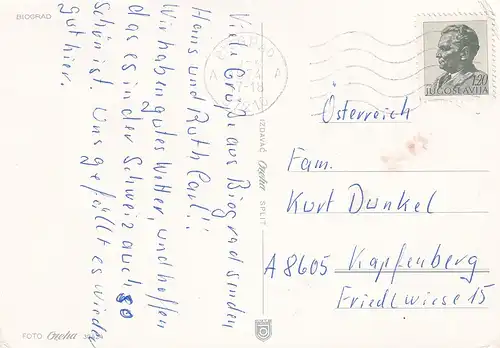 BIOGRAD
Viele Grüße aus Biograd senden
Hans und Ruth Carl!!
Wir haben gutes Wetter, und hoffen
das es in der Schweiz auch so
schön ist. Uns gefällt es wieder
gut hier.
FOTO Čveha
IZDAVAČ Čveha SPLIT
BIOGRAD
A A
17-18
1,20
JUGOSLAVIJA
Österreich
Fam.
Kurt Dunkel
A 8605 Kapfenberg
Friedlwiese 15